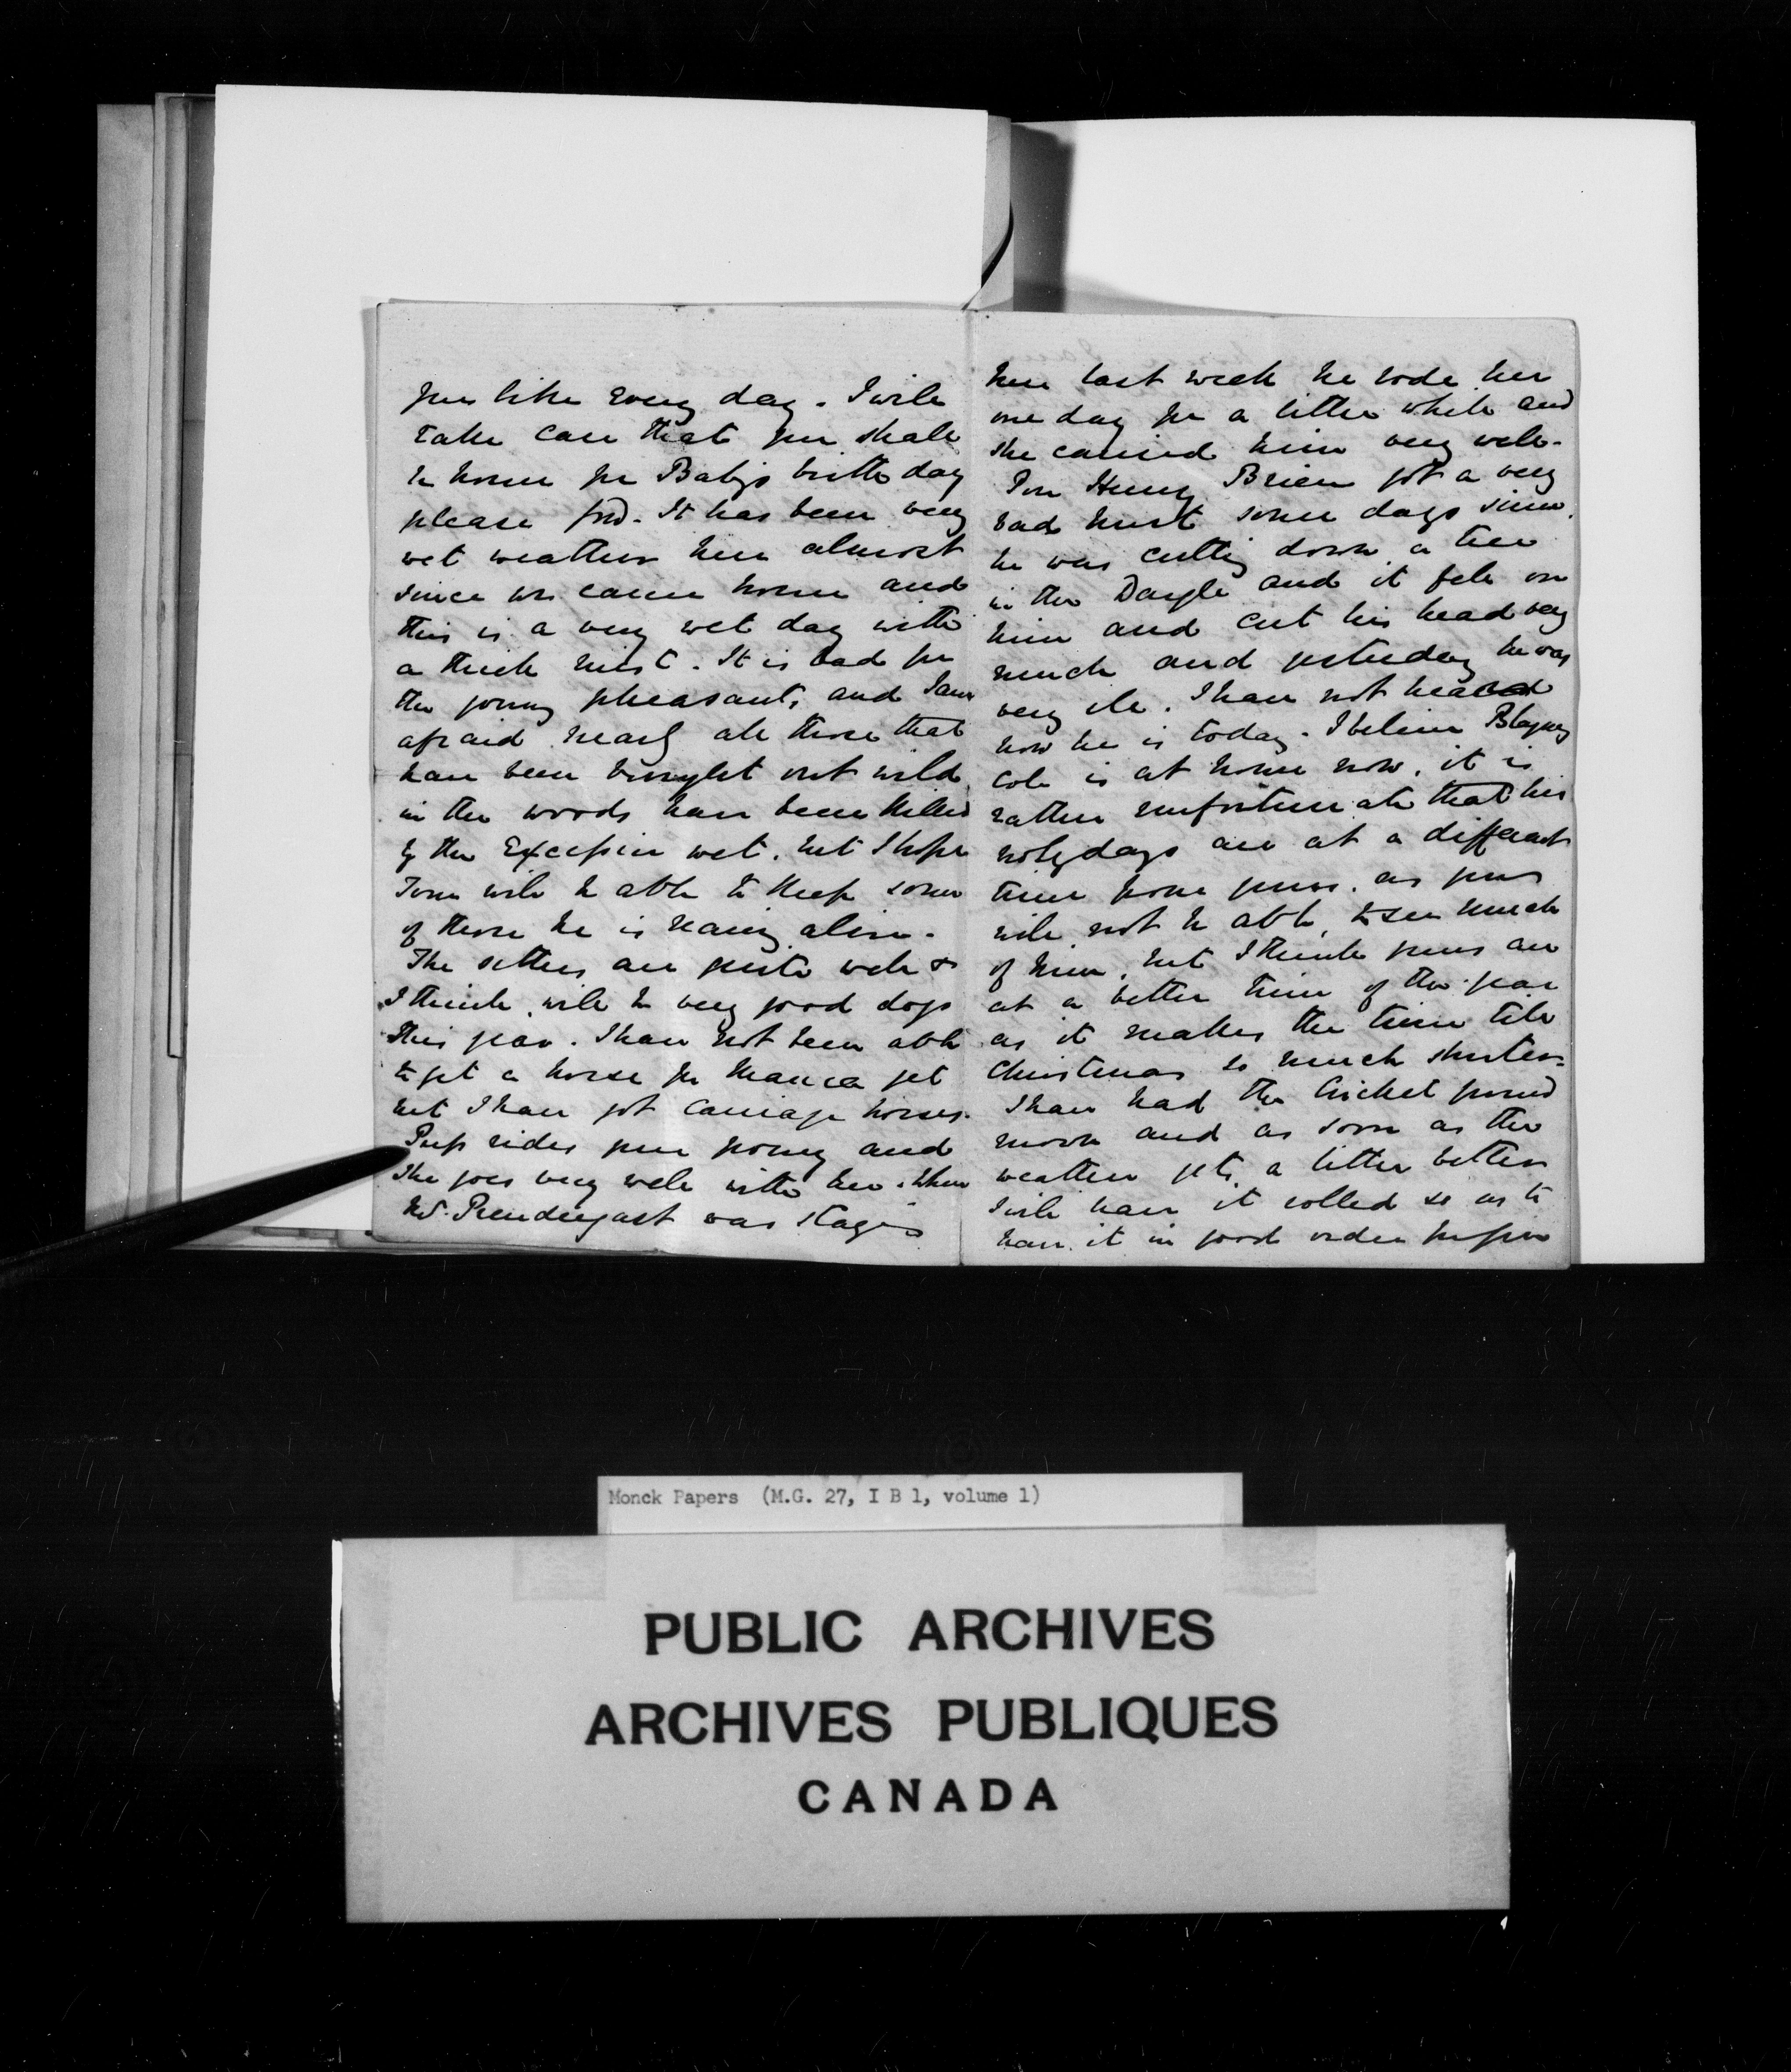 you like every day. I will
take care that you shall
be home for Baby's birthday
please God. It has been very
wet weather here almost
since we came home and
this is a very wet day with
a thick mist. It is bad for
the young pheasants, and I am
afraid nearly all those that
have been brought out wild
in the woods have been killed
by the excessive wet, but I hope
Tom will be able to keep some
of those he is rearing alive.
The setters are quite well &
I think will be very good dogs
this year. I have not been able
to get a horse for Mama yet
but I have got carriage horses.
Puss rides your pony and
she goes very well with her. When
Mr. Prendergast was staying
here last week he rode her
one day for a little while and
she carried him very well.
Poor Henry Brien got a very
bad hurt some days since.
he was cutting down a tree
in the Dargle and it fell on
him and cut his head very
much and yesterday he was
very ill. I have not heard
how he is today. I believe Blayney
Cole is at home now, it is
rather unfortunate that his
holydays are at a different
time from yours, as you
will not be able to see much
of him, but I think yours are
at a better time of the year
as it makes the time till
Christmas so much shorter.
I have had the Cricket ground
mown and as soon as the
weather gets a little better
I will have it rolled so as to
have it in good order for you
Monck Papers (M.G. 27, I B 1, volume 1)
PUBLIC ARCHIVES
ARCHIVES PUBLIQUES
CANADA